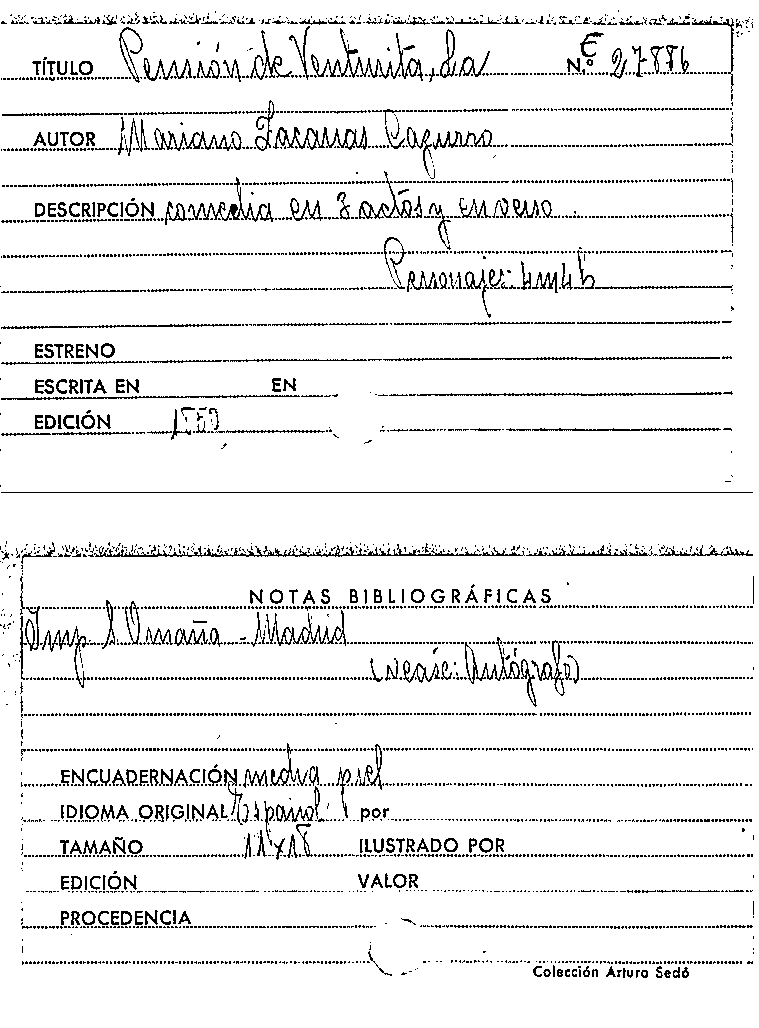 TÍTULO Pensión de Venturita, La N.º E 27886
AUTOR Mariano Zacarías Cazurro
DESCRIPCIÓN comedia en 3 actos y en verso.
Personajes: 4m4h
ESTRENO
ESCRITA EN EN
EDICIÓN
NOTAS BIBLIOGRÁFICAS
Imp. S. Omaña - Madrid
(véase: Autógrafo)
ENCUADERNACIÓN media piel
IDIOMA ORIGINAL Español por
TAMAÑO 11x18 ILUSTRADO POR
EDICIÓN VALOR
PROCEDENCIA
Colección Arturo Sedó